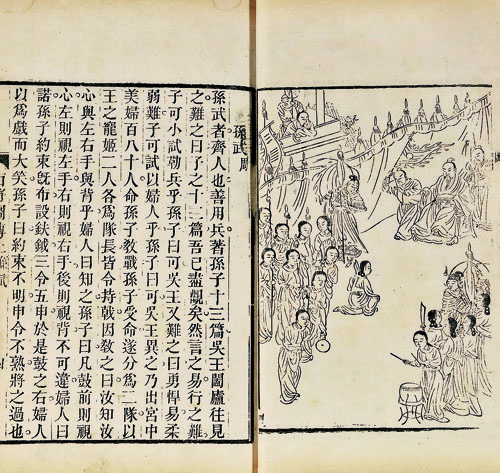 孫武 周
孫武者齊人也善用兵著孫子十三篇吳王闔廬往見
之難之曰子之十三篇吾已盡觀矣然言之易行之難
子可小試勒兵乎孫子曰可吳王又難之曰勇悍易柔
弱難子可試以婦人乎孫子曰可吳王異之乃出宮中
美婦百八十人命孫子教戰孫子受命遂分爲二隊以
王之寵姬二人各爲隊長皆令持戟因敎之曰汝知汝
心與左右手與背乎婦人曰知之孫子曰凡鼓前則視
心左則視左手右則視右手後則視背不可違婦人曰
諾孫子約束旣布設鈇鉞三令五申於是鼓之右婦人
以爲戲而大笑孫子曰約束不明申令不熟將之過也